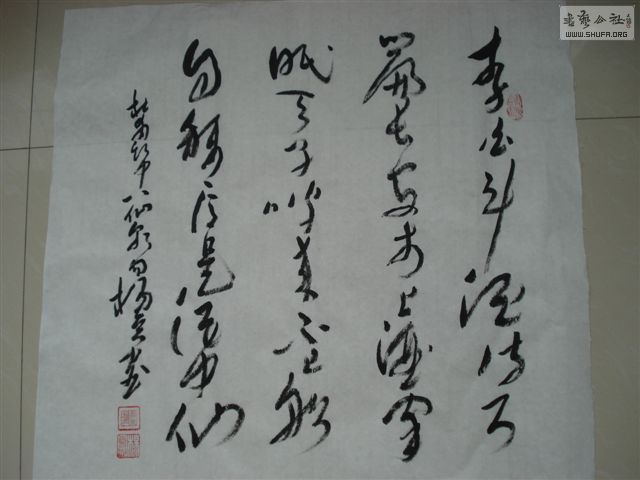 書藝公社
WWW.SHUFA.ORG
李白斗酒诗百
篇长安市上酒家
眠天子呼来不上船
自称臣是酒中仙
杜甫饮中八仙歌句杨书